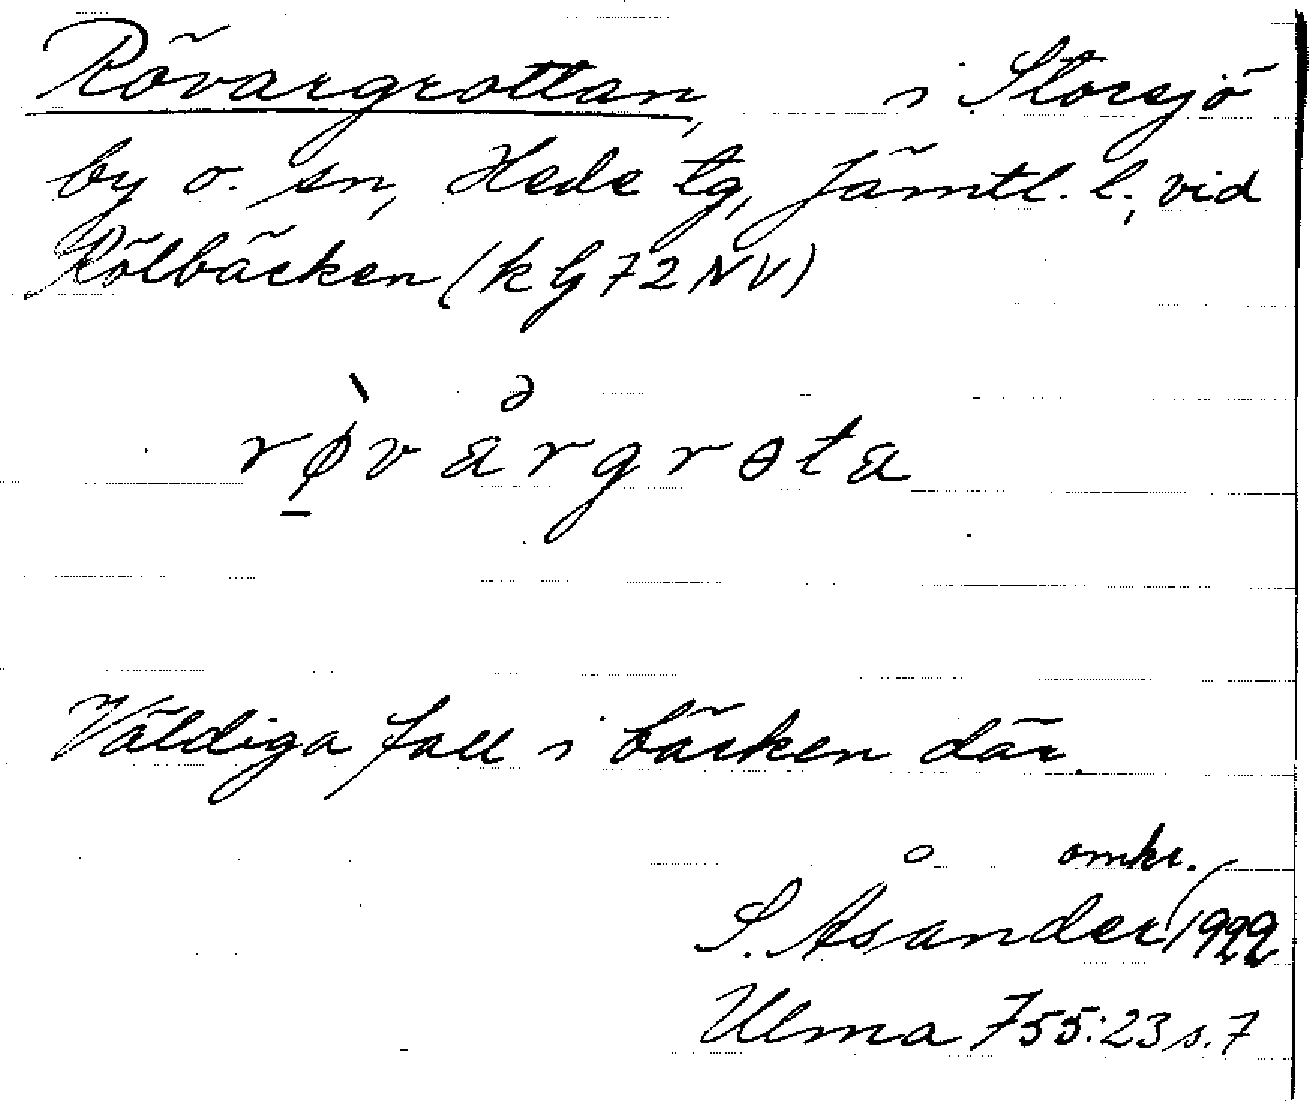 Rövargrottan, i Storsjö
by o. sn, Hede tg, Jämtl. l., vid
Rölbäcken (k G 72 NV)
rø̀vårgrɵta
Väldiga fall i bäcken där.
omkr.
S. Åsander 1922
Ulma 755:23 s. 7